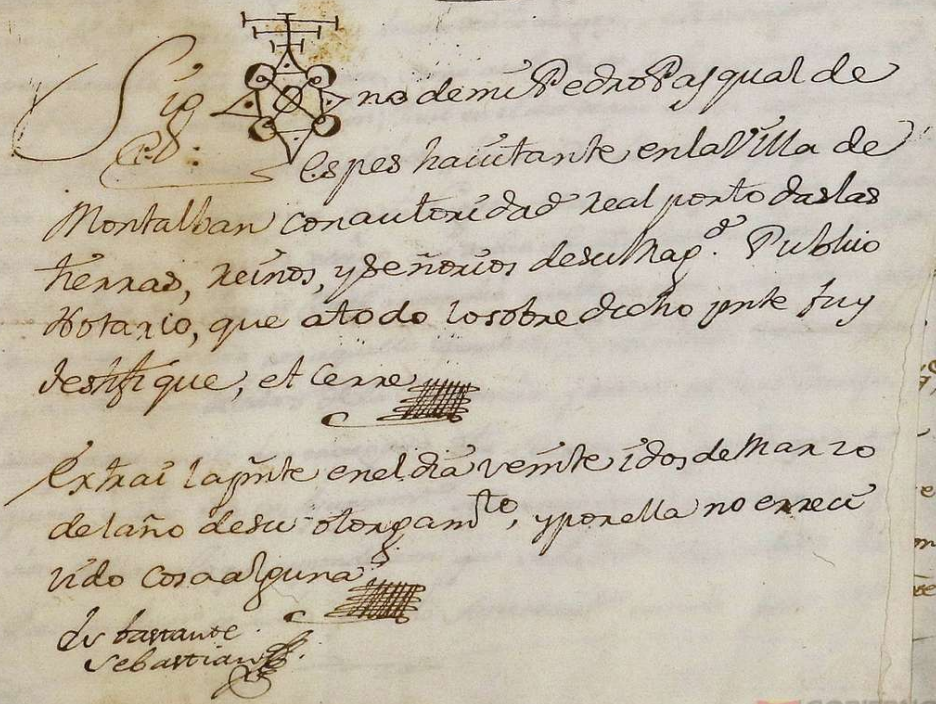 Sig no de mi Pedro Pasqual de
Espes havitante en la Villa de
Montalban con autoridad real por todas las
tierras, reinos, y Señorios de su Magd. Publio
Notario, que a todo lo sobre dicho pnte fuy
testifique, et Cerre
Extrai la pnte en el dia veinte idos de Marzo
del año de su otorgamto, y por ella no e rreci
vido cosa alguna
Es bastante
Sebastian